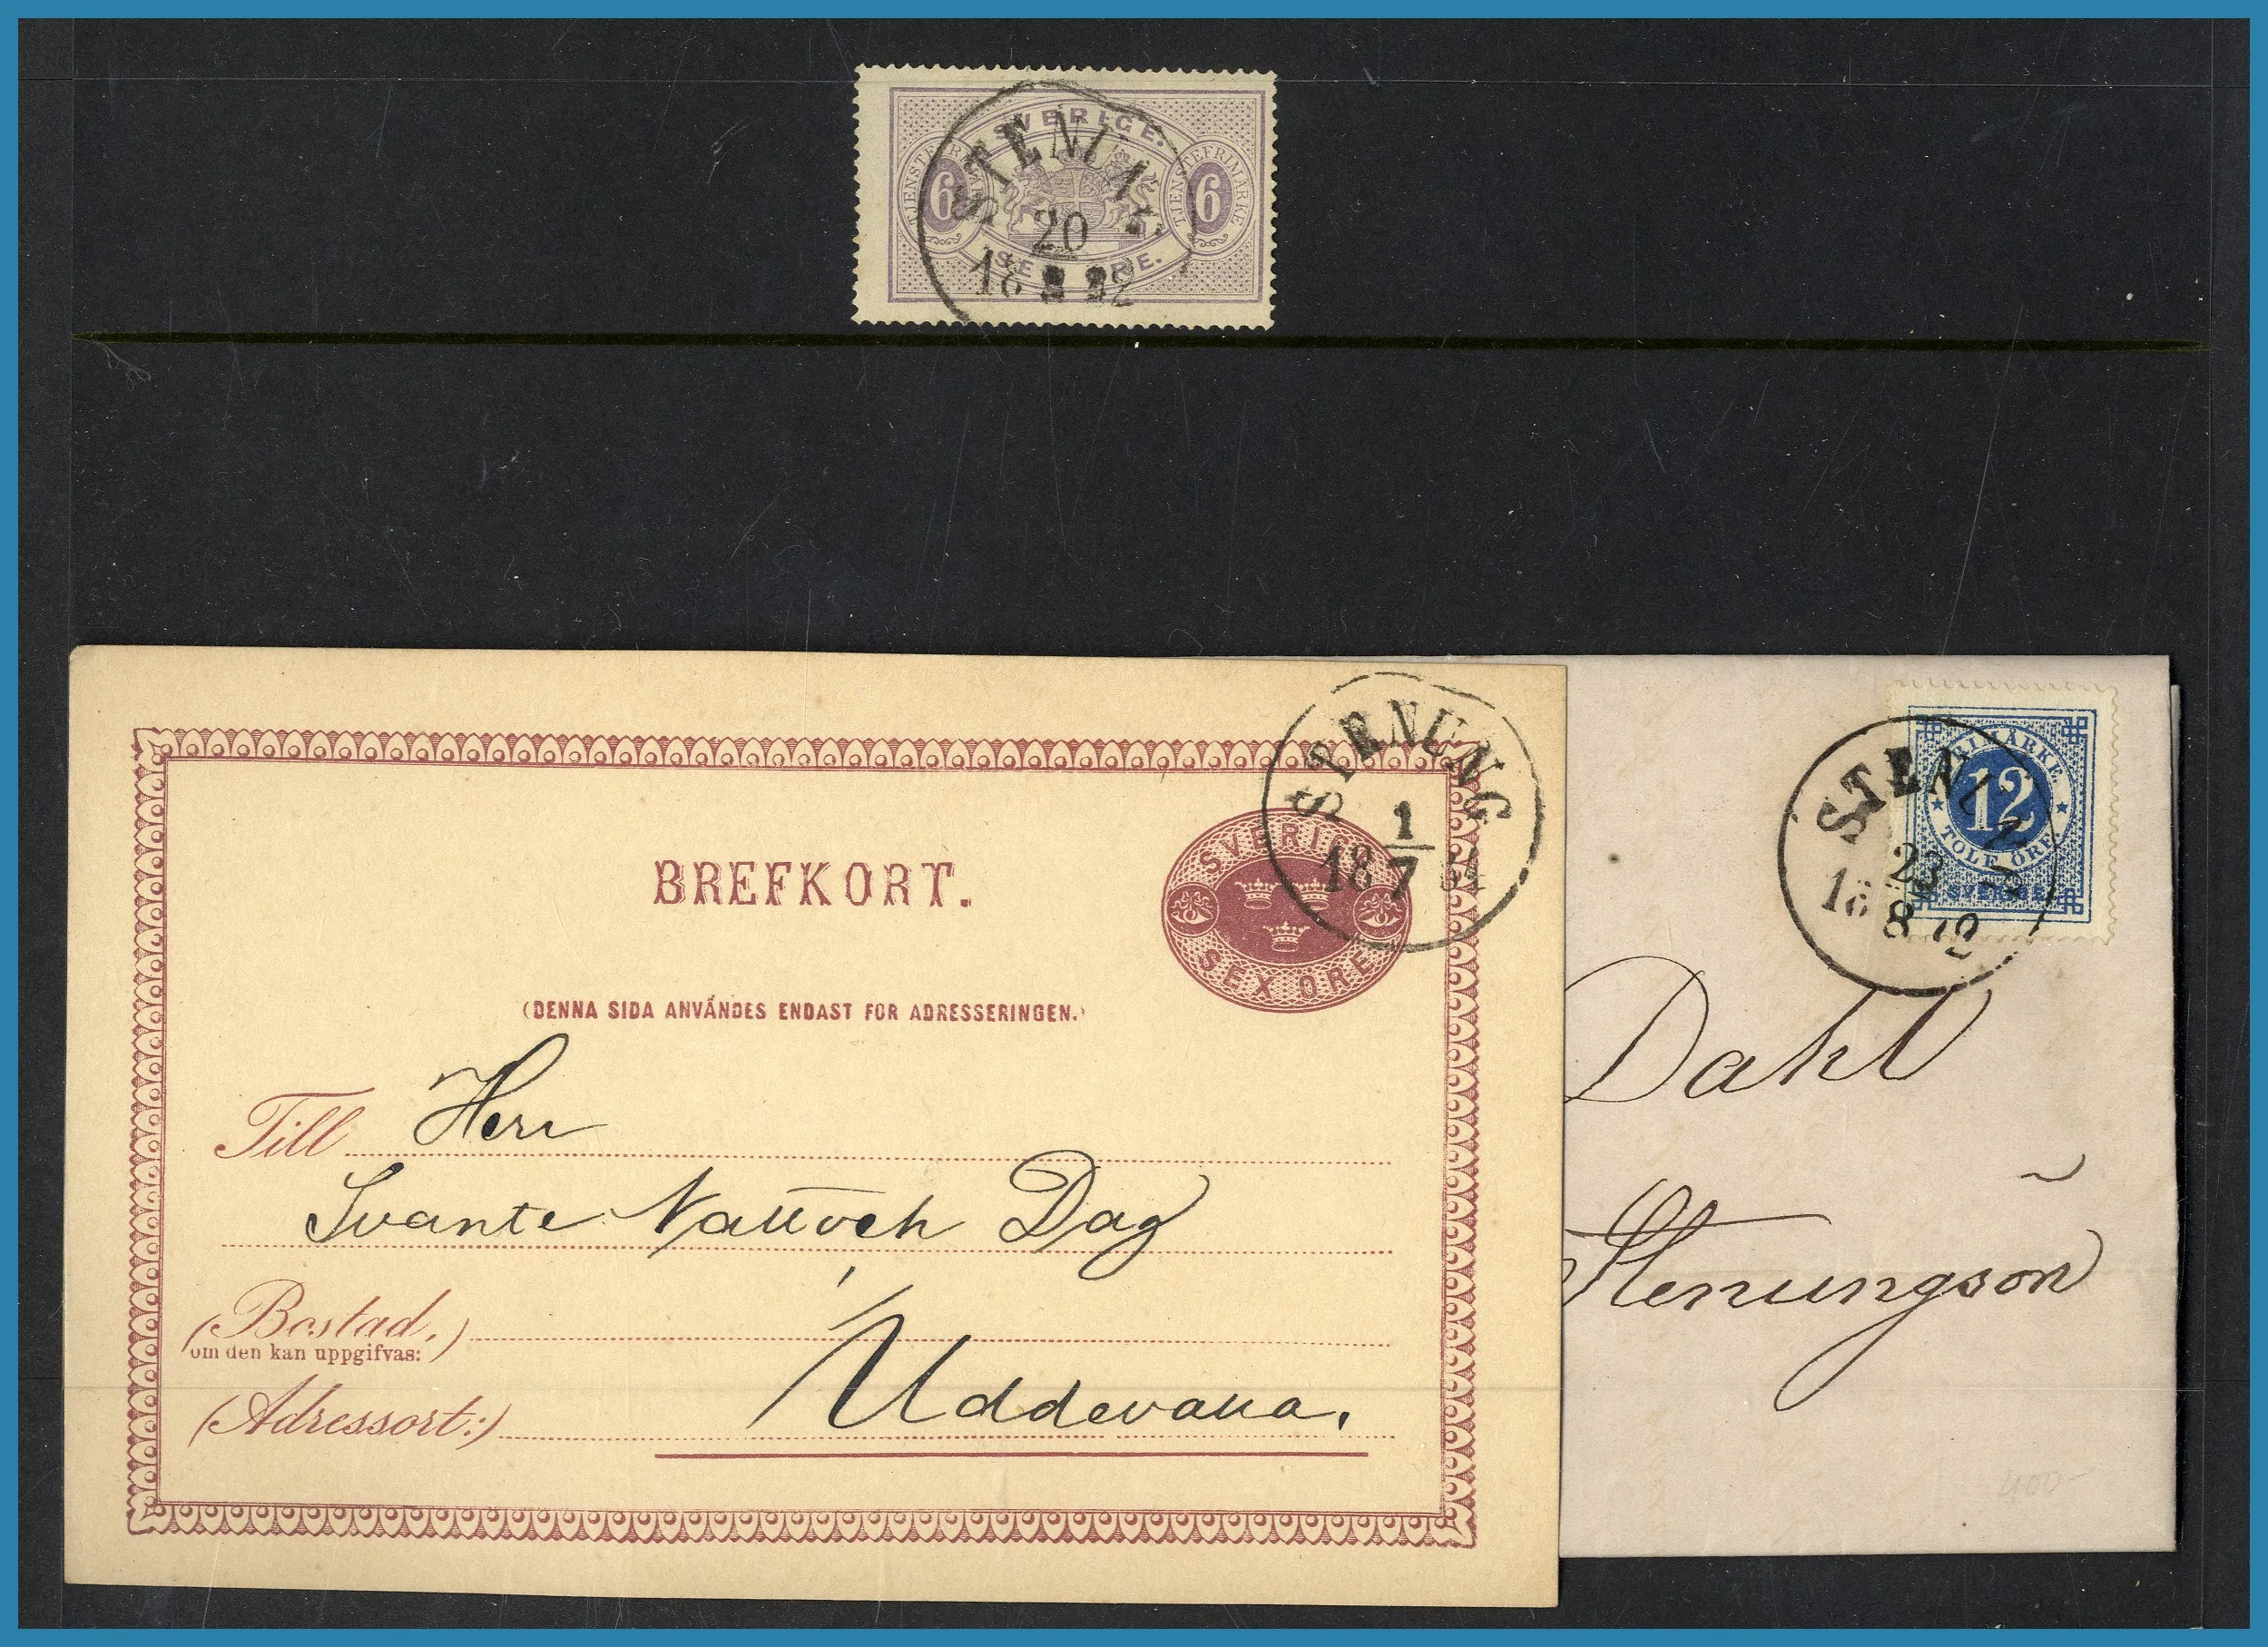 SVERIGE.
TJENSTEFRIMÄRKE
6
6
20
18
BREFKORT.
SVERIGE
SEX ÖRE
STENUNG
1
18 7
(DENNA SIDA ANVÄNDES ENDAST FÖR ADRESSERINGEN.)
Till Herr
Svante Natt och Dag
(Bostad,)
om den kan uppgifvas:
(Adressort:) Uddevalla.
FRIMÄRKE.
12
TOLF ÖRE
SVERIGE
23
18 8
Dahl
Stenungsön
400-